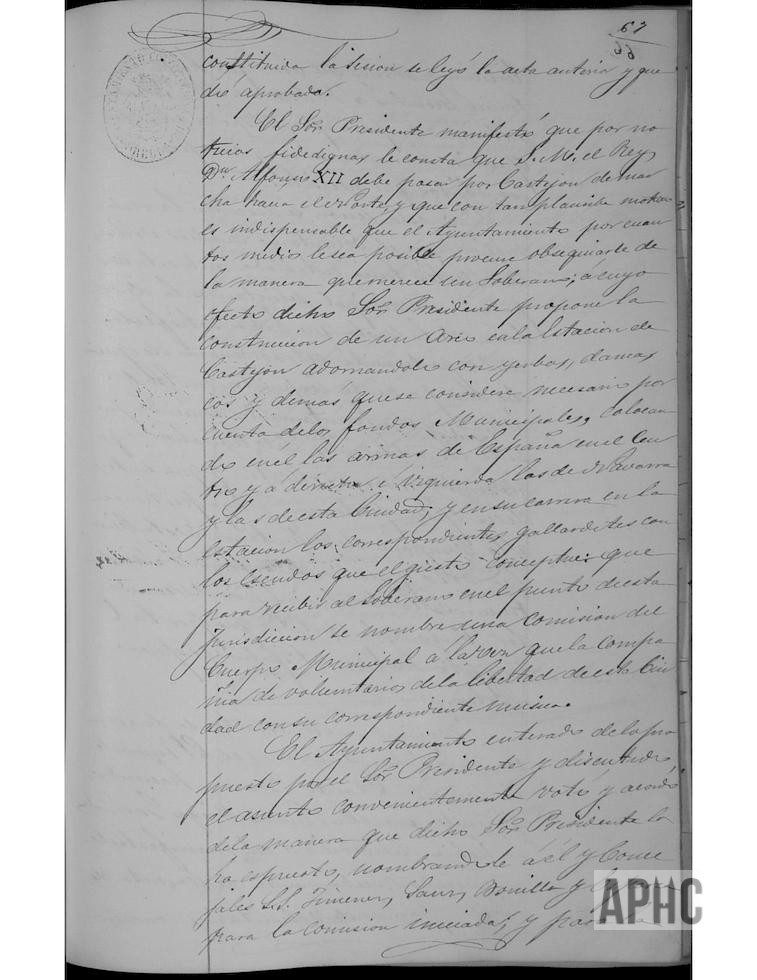 67
66
constituida la sesion se leyó la acta anterior y que
dó aprobada.
El Sor. Presidente manifestó que por no
ticias fidedignas le consta que S. M. el Rey
Dn. Alfonso XII debe pasar por Castejon de mar
cha hacia el Norte, y que con tan plausible motivo
es indispensable que el Ayuntamiento por cuan
tos medios le sea posible procure obsequiarle de
la manera que merece un Soberano; a cuyo
efecto dicho Sor. Presidente propone la
construccion de un Arco en la Estacion de
Castejon adornandole con yerbas, damas
cos y demás que se considere necesario por
cuenta de los fondos Municipales, colocan
do en el las armas de España en el Cen
tro y á derecha é izquierda las de Navarra
y las de esta Ciudad; y en su carrera en la
Estacion los correspondientes gallardetes con
los Escudos que el gusto conceptue: que
para recibir al Soberano en el punto de esta
Jurisdiccion se nombre una comision del
Cuerpo Municipal a la vez que la compa
ñia de voluntarios de la libertad de esta Ciu
dad con su correspondiente musica.
El Ayuntamiento enterado de lo pro
puesto por el Sor. Presidente y discutido
el asunto convenientemente votó y acordó
de la manera que dicho Sor. Presidente lo
ha espuesto, nombrando le á él y Conce
jales S.S. Jimenez, Sanz, Bonilla y
para la comision iniciada; y
APHC